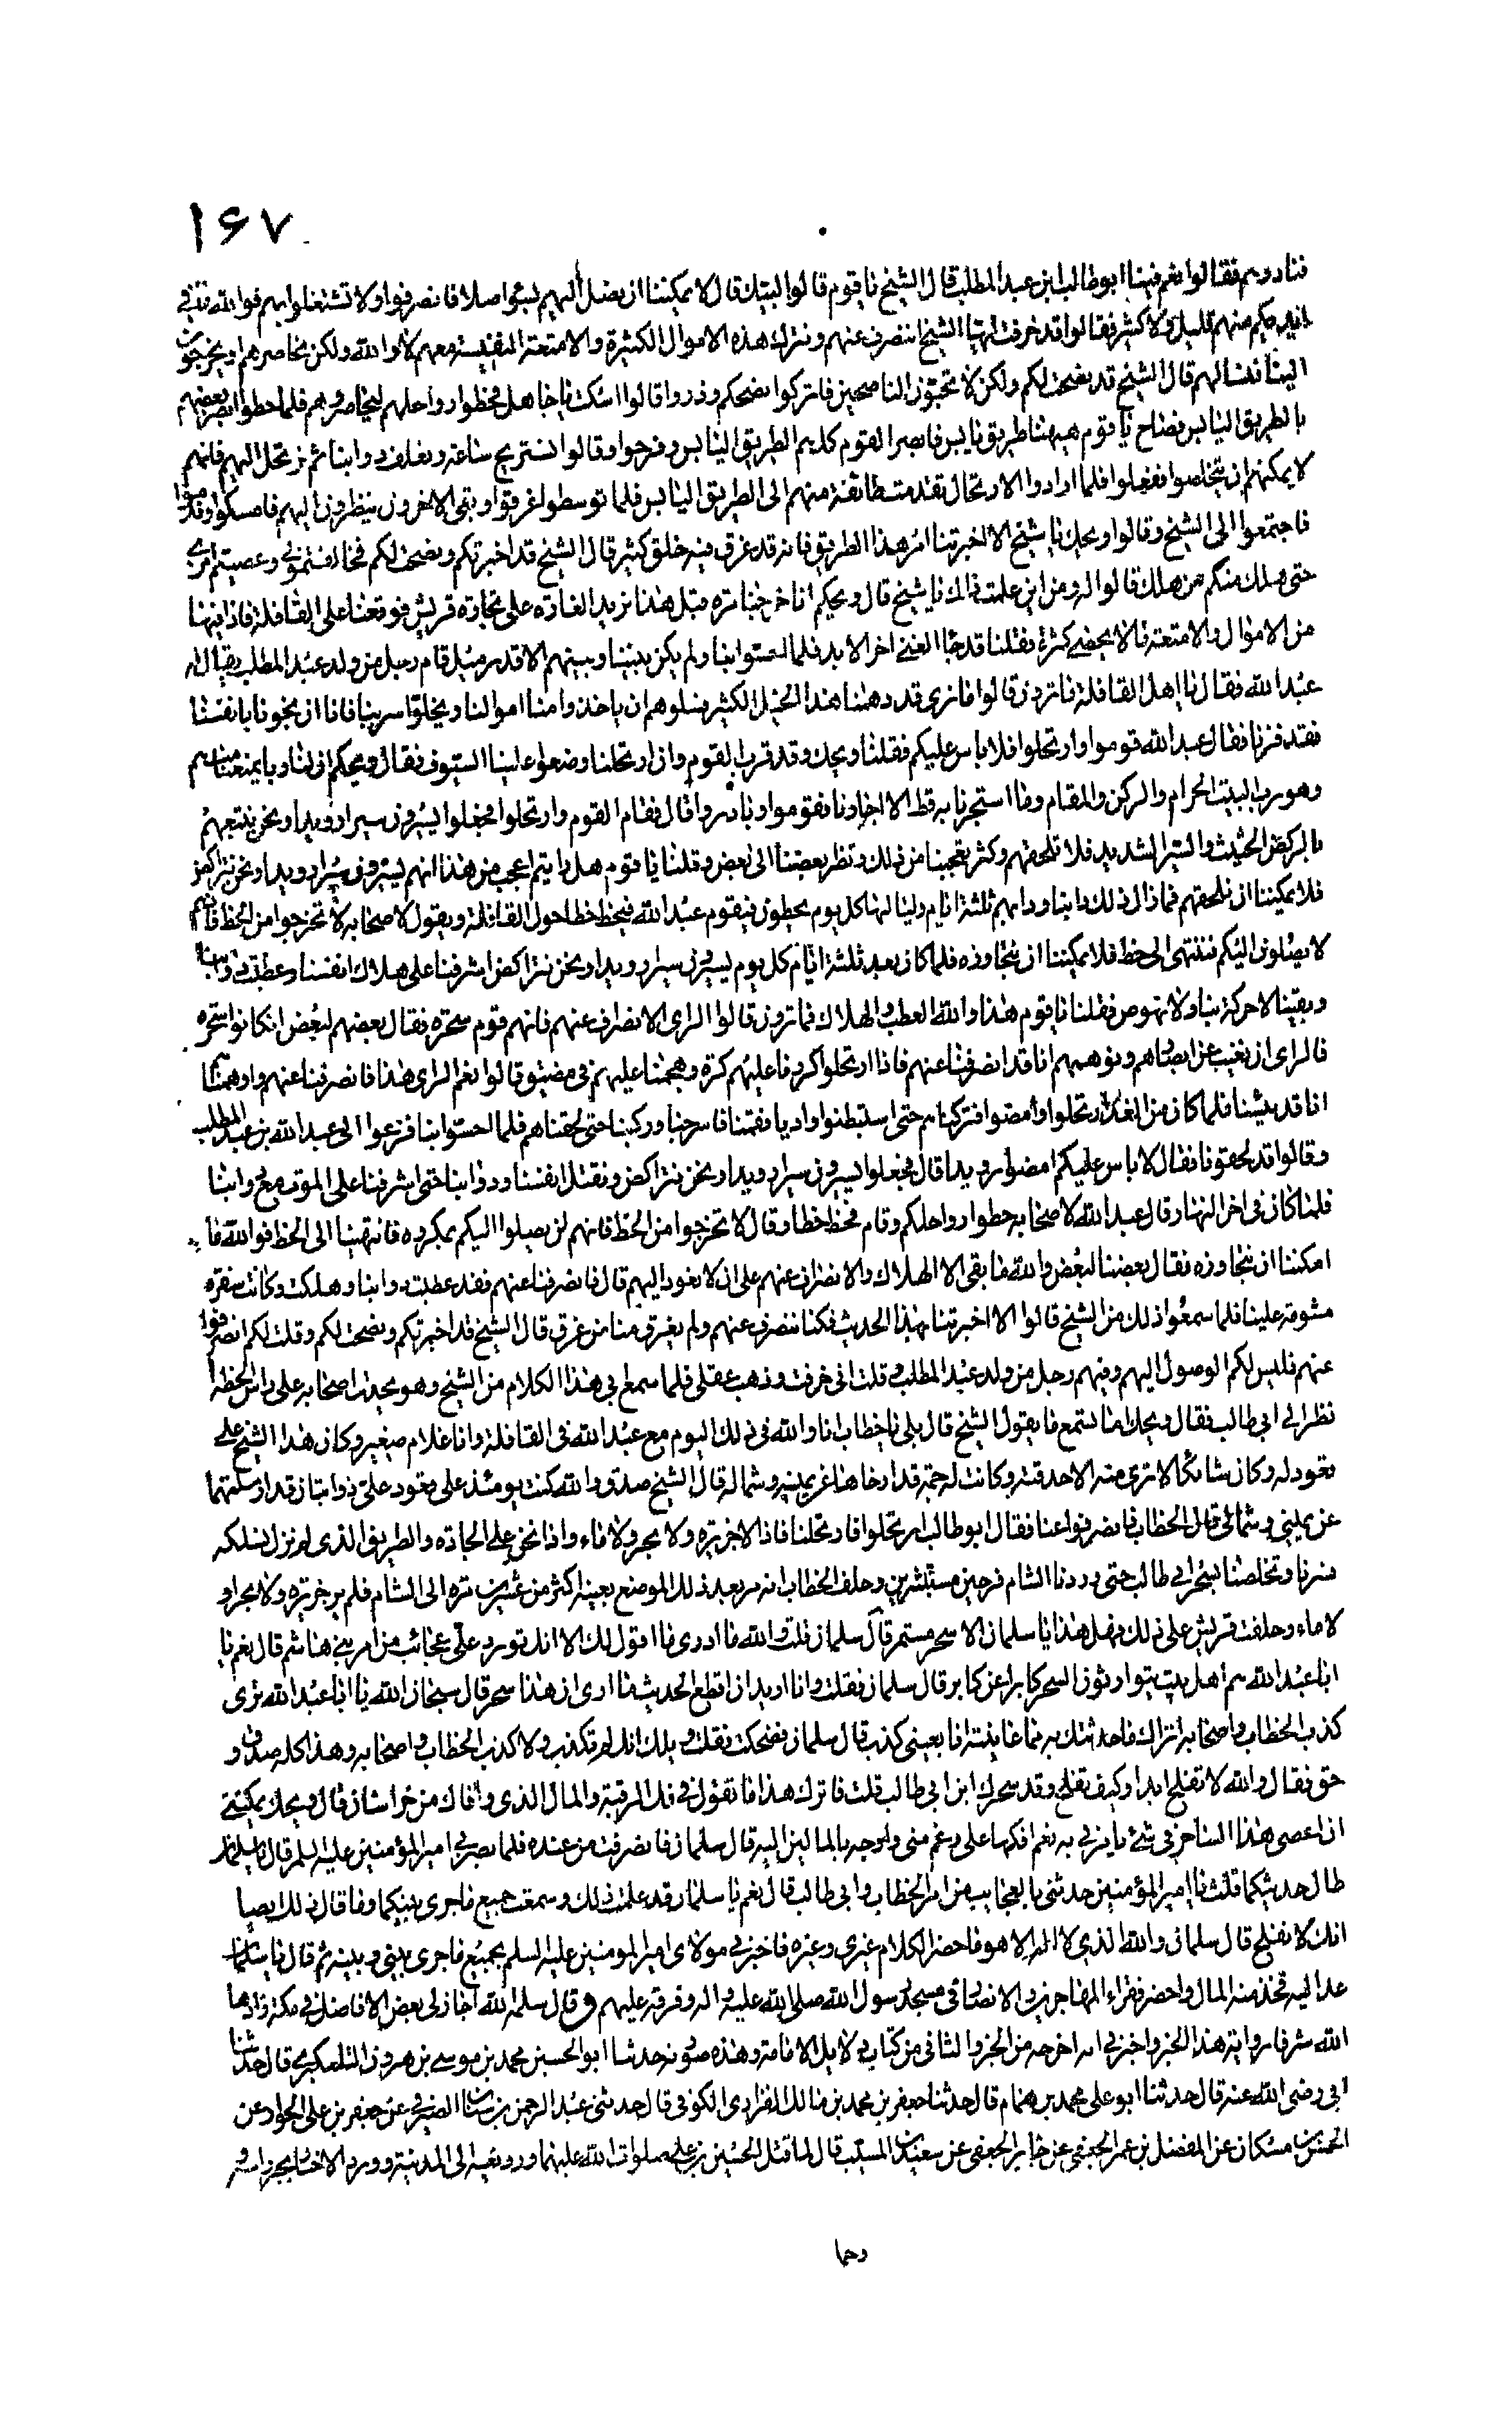 ۱۶۷
فنادوهم فقالوا نعم فينا ابو طالب بن عبد المطلب قال الشيخ يا قوم قالوا لبيك قال لا يمكننا ان نصل اليهم بسوء اصلا فانصرفوا ولا تشتغلوا بهم فوالله ما في
ايديكم منهم قليل ولا كثير فقالوا قد خرفت ايها الشيخ اننصرف عنهم ونترك هذه الاموال الكثيرة والامتعة النفيسة معهم لا والله ولكن نحاصرهم او يخرجون
الينا فنسالهم قال الشيخ قد نصحت لكم ولكن لا تحبون الناصحين فاتركوا نصحكم وذروا قالوا اسكت يا جاهل فحطوا رواحلهم ليحاصروهم فلما حطوا ابصر بعضهم
بالطريق اليابس فصاح يا قوم هيهنا طريق يابس فابصر القوم كلهم الطريق اليابس وفرحوا وقالوا نستريح ساعة ونعلف دوابنا ثم نرتحل اليهم فانهم
لا يمكنهم ان يتخلصوا ففعلوا فلما ارادوا الارتحال تقدمت طائفة منهم الى الطريق اليابس فلما توسطوا غرقوا وبقي الاخرون ينظرون اليهم فامسكوا وندموا
فاجتمعوا الى الشيخ وقالوا ويحك يا شيخ الا اخبرتنا امر هذا الطريق فانه قد غرق فيه خلق كثير قال الشيخ قد اخبرتكم ونصحت لكم فخالفتموني وعصيتم امري
حتى هلك منكم من هلك قالوا له ومن اين علمت ذاك يا شيخ قال ويحكم انا خرجنا مرة قبل هذا نريد الغارة على تجارة قريش فوقعنا على القافلة فاذا فيها
من الاموال والامتعة ما لا يحصى كثرة فقلنا قد جاء الغنى اخر الابد فلما احسوا بنا ولم يكن بيننا وبينهم الا قدر ميل قام رجل من ولد عبد المطلب يقال له
عبد الله فقال يا اهل القافلة ما ترون قالوا ما نرى قد دهمنا هذا الخيل الكثير فسلوهم ان ياخذوا منا اموالنا ويخلوا سربنا فانا ان نجونا بانفسنا
فقد فزنا فقال عبد الله قوموا وارتحلوا فلا باس عليكم فقلنا ويحك وقد قرب القوم وان ارتحلنا وضعوا علينا السيوف فقال ويحكم ان لنا ربا يمنعنا منهم
وهو رب البيت الحرام والركن والمقام وما استجرنا به قط الا اجارنا فقوموا وبادروا قال فقام القوم وارتحلوا فجعلوا يسيرون سيرا رويدا ونحن نتبعهم
بالركض الحثيث والسير الشديد فلا نلحقهم وكثر تعجبنا من ذلك ونظر بعضنا الى بعض وقلنا يا قوم هل رايتم اعجب من هذا انهم يسيرون سيرا رويدا ونحن نتراكض
فلا يمكننا ان نلحقهم فما زال ذلك دابنا ودابهم ثلثة ايام ولياليها كل يوم يحطون فيقوم عبد الله فيخط خطا حول القافلة ويقول لاصحابه لا تخرجوا من الخط فانهم
لا يصلون اليكم فننتهي الى خط فلا يمكننا ان نتجاوزه فلما كان بعد ثلثة ايام كل يوم يسيرون سيرا رويدا ونحن نتراكض اشرفنا على هلاك انفسنا وعطبت دوابنا
وبقينا لا حركة بنا ولا نهوض فقلنا يا قوم هذا والله العطب والهلاك فما ترون قالوا الراى الانصراف عنهم فانهم قوم سحرة فقال بعضهم لبعض ان كانوا سحرة
فالراى ان نغيب عن ابصارهم ونوهمهم انا قد انصرفنا عنهم فاذا ارتحلوا كررنا عليهم كرة وهجمنا عليهم في مضيق قالوا نعم الراى هذا فانصرفنا عنهم واوهمناهم
انا قد يئسنا فلما كان من الغد ارتحلوا وامضوا فتركناهم حتى استبطنوا واديا فقمنا فاسرجنا وركبنا حتى لحقناهم فلما احسوا بنا فزعوا الى عبد الله بن عبد المطلب
وقالوا قد لحقونا فقال لا باس عليكم امضوا رويدا قال فجعلوا يسيرون سيرا رويدا ونحن نتراكض ونقتل انفسنا ودوابنا حتى اشرفنا على الموت مع دوابنا
فلما كان في اخر النهار قال عبد الله لاصحابه حطوا رواحلكم وقام فخط خطا وقال لا تخرجوا من الخط فانهم لن يصلوا اليكم بمكروه فانتهينا الى الخط فوالله ما
امكننا ان نتجاوزه فقال بعضنا لبعض والله ما بقي الا الهلاك والانصراف عنهم على ان لا نعود اليهم قال فانصرفنا عنهم فقد عطبت دوابنا وهلكت وكانت سفرة
مشومة علينا فلما سمعوا ذلك من الشيخ قالوا الا اخبرتنا بهذا الحديث فكنا ننصرف عنهم ولم يغرق منا من غرق قال الشيخ قد اخبرتكم ونصحت لكم وقلت لكم انصرفوا
عنهم فليس لكم الوصول اليهم وفيهم رجل من ولد عبد المطلب وقلت اني خرفت وذهب عقلي فلما سمع ابي هذا الكلام من الشيخ وهو يحدث اصحابه على راس الخطة
نظر الى ابي طالب فقال ويحك اما تسمع ما يقول الشيخ قال بلى يا خطاب انا والله في ذلك اليوم مع عبد الله في القافلة وانا غلام صغير وكان هذا الشيخ على
قعود له وكان شائكا لا ترى منه الا حدقته وكانت له جمة قد ارخاها عن يمينه وشماله قال الشيخ صدق والله كنت يومئذ على قعود على ذوابتان قد ارسلتهما
عن يميني وشمالي قال الخطاب فانصرفوا عنا فقال ابو طالب ارتحلوا فارتحلنا فاذا لا جزيرة ولا بحر ولا ماء واذا نحن على الجادة والطريق الذي لم نزل نسلكه
فسرنا وتخلصنا بسحر ابي طالب حتى وردنا الشام فرحين مستبشرين وحلف الخطاب انه مر بعد ذلك الموضع بعينه اكثر من عشرين مرة الى الشام فلم ير جزيرة ولا بحرا و
لا ماء وحلفت قريش على ذلك فهل هذا يا سلمان الا سحر مستمر قال سلمان قلت والله ما ادري ما اقول لك الا انك تورد علي عجائب من امر بني هاشم قال نعم يا
ابا عبد الله هم اهل بيت يتوارثون السحر كابرا عن كابر قال سلمان فقلت وانا اريد ان اقطع الحديث ما ارى ان هذا سحر قال سبحان الله يا ابا عبد الله ترى
كذب الخطاب واصحابه اتراك ما حدثتك به مما عاينته انا بعيني كذب قال سلمان فضحكت فقلت ويلك انك لم تكذب ولا كذب الخطاب واصحابه وهذا كله صدق و
حق فقال والله لا تفلح ابدا وكيف تفلح وقد سحرك ابن ابي طالب قلت فاترك هذا ما تقول في فك الرقبة والمال الذي وافاك من خراسان قال ويحك يمكنني
ان اعصي هذا الساحر في شئ يامرني به نعم افكها على رغم مني واوجه بالمال اليه قال سلمان فانصرفت من عنده فلما بصر بي امير المؤمنين عليه السلم قال يا سلمان
طال حديثكما قلت يا امير المؤمنين حدثني بالعجائب من امر الخطاب وابي طالب قال نعم يا سلمان قد علمت ذلك وسمعت جميع ما جرى بينكما وما قال لك ايضا
انك لا تفلح قال سلمان والله الذي لا اله الا هو ما حضر الكلام غيري وغيره فاخبرني مولاي امير المومنين عليه السلم بجميع ما جرى بيني وبينه ثم قال يا سلمان
عد اليه فخذ منه المال واحضر فقراء المهاجرين والانصار في مسجد رسول الله صلى الله عليه واله وفرقه عليهم وقال سلمه الله اجاز لي بعض الافاضل في مكة زادها
الله شرفا رواية هذا الخبر واخبرني انه اخرجه من الجزو الثاني من كتاب دلايل الامامة وهذه صورته حدثنا ابو الحسين محمد بن موسى بن هرون التلعكبري قال حدثنا
ابي رضي الله عنه قال حدثنا ابو علي محمد بن همام قال حدثنا جعفر بن محمد بن مالك الفزاري الكوفي قال حدثني عبد الرحمن بن سنان الصيرفي عن جعفر بن علي الجواد عن
الحسن بن مسكان عن المفضل بن عمر الجعفي عن جابر الجعفي عن سعيد بن المسيب قال لما قتل الحسين بن علي صلوات الله عليهما وورد نعيه الى المدينة وورد الاخبار بجز راسه
وحما